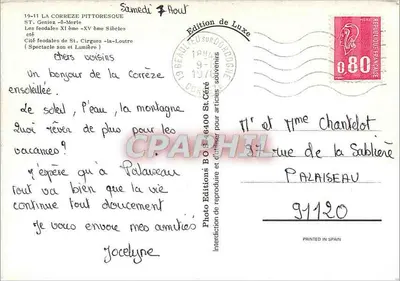 Samedi 7 Aout
19-11 LA CORREZE PITTORESQUE
ST. Geniez -ô-Merle
Les feodales XI ème -XV ème Siècles
cité
Cité feodales de St. Cirgues la-Loutre
( Spectacle son et Lumière )
chers voisins
un bonjour de la corrèze
ensoleillée.
Le soleil, l'eau, la montagne
Quoi rêver de plus pour les
vacances?
J'espère qu'à Palaiseau
tout va bien que la vie
continue tout doucement
Je vous envoie mes amitiés
Jocelyne
Edition de Luxe
Photo Editions BOS 46400 St. Céré
Interdiction de reproduire et imprimer pour articles : souvenirs
19 BEAULIEU SUR DORDOGNE
9-8
1976
0,80
REPUBLIQUE FRANÇAISE
Mr et Mme Chantelot
37 rue de la Sablière
PALAISEAU
91120
PRINTED IN SPAIN
CPARAMA.COM